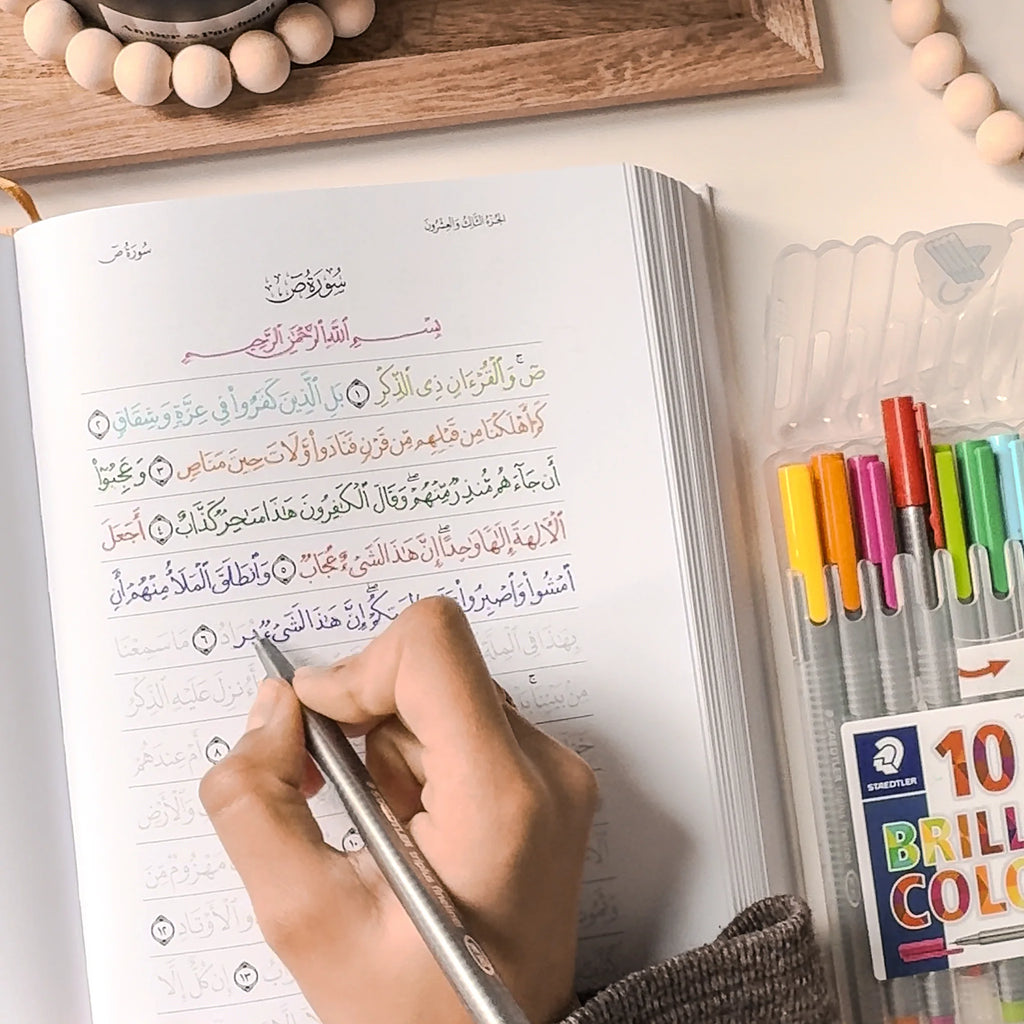 Amber & Patchouli
الجزء الثالث والعشرون
سورة ص
سورة ص
بسم الله الرحمن الرحيم
صٓ وَٱلْقُرْءَانِ ذِى ٱلذِّكْرِ ١ بَلِ ٱلَّذِينَ كَفَرُوا۟ فِى عِزَّةٍ وَشِقَاقٍ ٢
كَمْ أَهْلَكْنَا مِن قَبْلِهِم مِّن قَرْنٍ فَنَادَوا۟ وَّلَاتَ حِينَ مَنَاصٍ ٣ وَعَجِبُوٓا۟
أَن جَآءَهُم مُّنذِرٌ مِّنْهُمْ ۖ وَقَالَ ٱلْكَٰفِرُونَ هَٰذَا سَٰحِرٌ كَذَّابٌ ٤ أَجَعَلَ
ٱلْءَالِهَةَ إِلَٰهًا وَٰحِدًا ۖ إِنَّ هَٰذَا لَشَىْءٌ عُجَابٌ ٥ وَٱنطَلَقَ ٱلْمَلَأُ مِنْهُمْ أَنِ
ٱمْشُوا۟ وَٱصْبِرُوا۟ إِنَّ هَٰذَا لَشَىْءٌ يُرَادُ ٦ مَا سَمِعْنَا
بِهَٰذَا فِى ٱلْمِلَّةِ
مِنۢ بَيْنِنَا أَءُنزِلَ عَلَيْهِ ٱلذِّكْرُ
٨ أَمْ عِندَهُمْ
وَٱلْأَرْضِ
١٠ مَهْزُومٌ مِّنَ
ٱلْأَوْتَادِ ١٢
١٣ إِن كُلٌّ إِلَّا
STAEDTLER
10
BRILL
COLO